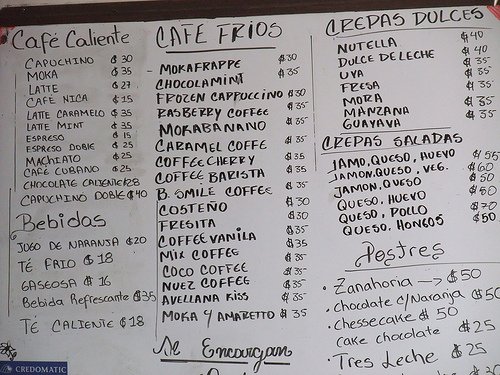 Café Caliente
CAPUCHINO $30
MOKA $35
LATTE $27
CAFÉ NICA $15
LATTE CARAMELO $35
LATTE MINT $35
ESPRESO $15
ESPRESO DOBLE $25
MACHIATO $25
CAFÉ CUBANO $25
CHOCOLATE CALIENTE $28
CAPUCHINO DOBLE $40
Bebidas
JUGO DE NARANJA $20
TÉ FRIO $18
GASEOSA $16
Bebida Refrescante $35
TÉ CALIENTE $18
CREDOMATIC
CAFE FRIOS
- MOKAFRAPPE $30
CHOCOLAMINT $35
FROZEN CAPPUCCINO $30
RASBERRY COFFEE $35
MOKABANANO $35
CARAMEL COFFE $35
COFFEE CHERRY $35
COFFEE BARISTA $35
B. SMILE COFFEE $35
COSTEÑO $30
FRESITA $30
COFFEE VANILA $35
MIX COFFEE $35
COCO COFFEE $35
NUEZ COFFEE $35
AVELLANA KISS $35
MOKA Y AMARETTO $35
Se Encargan
CREPAS DULCES
NUTELLA $40
DULCE DE LECHE $40
UVA $35
FRESA $35
MORA
MANZANA $35
GUAYAVA $35
CREPAS SALADAS
JAMO, QUESO, HUEVO $55
JAMON, QUESO, VEG. $60
JAMON, QUESO $50
QUESO, HUEVO $50
QUESO, POLLO $70
QUESO, HONGOS $50
Postres
• Zanahoria —> $50
• chocolate c/Naranja $50
• chessecake $50
cake chocolate $25
• Tres Leche $25